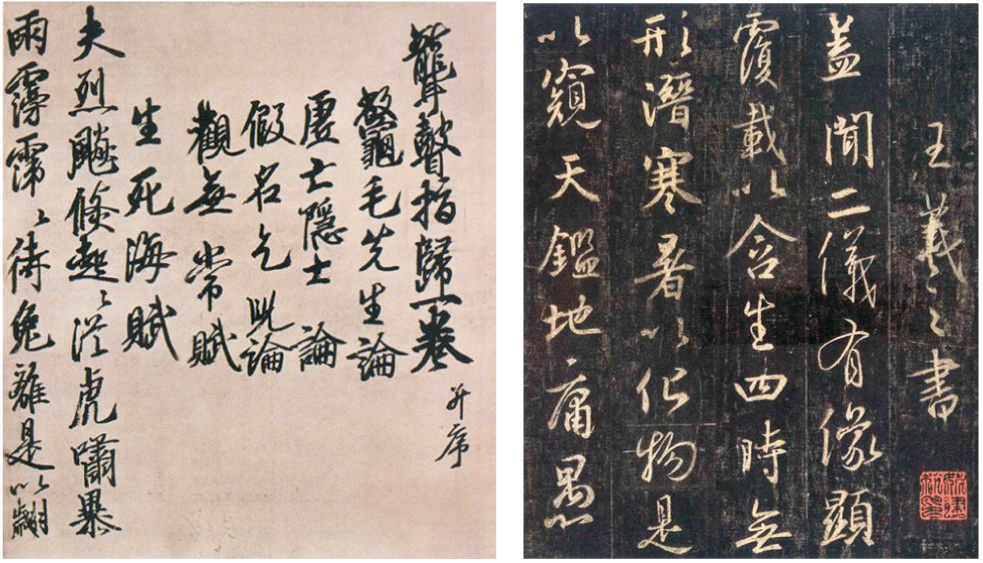 聾瞽指歸一卷 并序
鼇毛先生論
虛亡隱士論
假名乞兒論
觀無常賦
生死海賦
夫烈飈倏起〻從虎嘯暴
雨霶霈〻待兔離是以翽
王羲之書
蓋聞二儀有像顯
覆載以含生四時無
形潛寒暑以化物是
以窺天鑑地庸愚